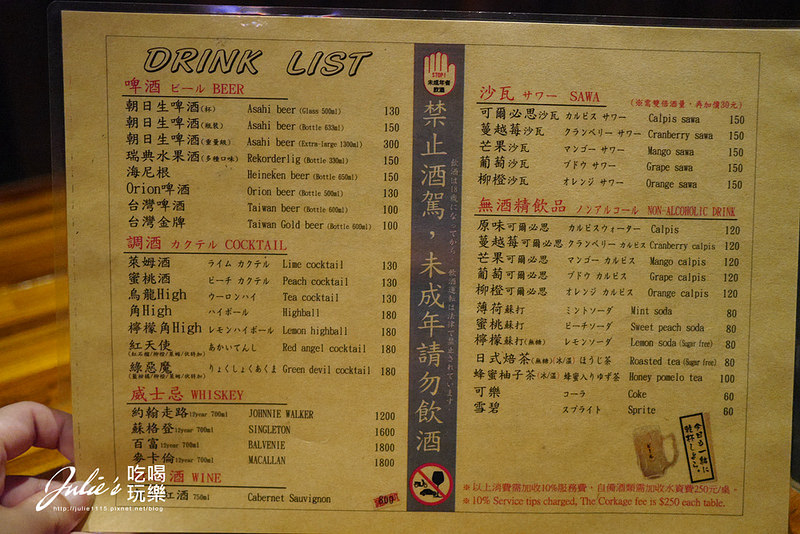 DRINK LIST
啤酒 ビール BEER
朝日生啤酒(杯) Asahi beer (Glass 500ml) 130
朝日生啤酒(瓶裝) Asahi beer (Bottle 633ml) 150
朝日生啤酒(重量級) Asahi beer (Extra-large 1300ml) 300
瑞典水果酒(多種口味) Rekorderlig (Bottle 330ml) 150
海尼根 Heineken beer (Bottle 650ml) 150
Orion啤酒 Orion beer (Bottle 500ml) 130
台灣啤酒 Taiwan beer (Bottle 600ml) 100
台灣金牌 Taiwan Gold beer (Bottle 600ml) 100
調酒 カクテル COCKTAIL
萊姆酒 ライム カクテル Lime cocktail 130
蜜桃酒 ピーチ カクテル Peach cocktail 130
烏龍High ウーロンハイ Tea cocktail 130
角High ハイボール Highball 180
檸檬角High レモンハイボール Lemon highball 180
紅天使 あかいてんし Red angel cocktail 180
綠惡魔 りょくしょくあくま Green devil cocktail 180
威士忌 WHISKEY
約翰走路12year 700ml JOHNNIE WALKER 1200
蘇格登12year 700ml SINGLETON 1600
百富12year 700ml BALVENIE 1800
麥卡倫12year 700ml MACALLAN 1800
酒 WINE
紅酒 750ml Cabernet Sauvignon 600
STOP!
未成年者
飲酒
禁止酒駕，未成年請勿飲酒
飲酒は18歳になってから 飲酒運転は法律で禁止されています
沙瓦 サワー SAWA (※需雙倍酒量，再加價30元)
可爾必思沙瓦 カルピス サワー Calpis sawa 150
蔓越莓沙瓦 クランベリー サワー Cranberry sawa 150
芒果沙瓦 マンゴー サワー Mango sawa 150
葡萄沙瓦 ブドウ サワー Grape sawa 150
柳橙沙瓦 オレンジ サワー Orange sawa 150
無酒精飲品 ノンアルコール NON-ALCOHOLIC DRINK
原味可爾必思 カルピスウォーター Calpis 120
蔓越莓可爾必思 クランベリー カルピス Cranberry calpis 120
芒果可爾必思 マンゴー カルピス Mango calpis 120
葡萄可爾必思 ブドウ カルピス Grape calpis 120
柳橙可爾必思 オレンジ カルピス Orange calpis 120
薄荷蘇打 ミントソーダ Mint soda 80
蜜桃蘇打 ピーチソーダ Sweet peach soda 80
檸檬蘇打(無糖) レモンソーダ Lemon soda (Sugar free) 80
日式焙茶(無糖)(冰/溫) ほうじ茶 Roasted tea (Sugar free) 80
蜂蜜柚子茶(冰/溫) 蜂蜜入りゆず茶 Honey pomelo tea 100
可樂 コーラ Coke 60
雪碧 スプライト Sprite 60
今日も一緒に
乾杯しよう。
※以上消費需加收10%服務費，自備酒類需加收水資費250元/桌。
※10% Service tips charged, The Corkage fee is $250 each table.
Julie's 吃喝玩樂
http://julie1115.pixnet.net/blog